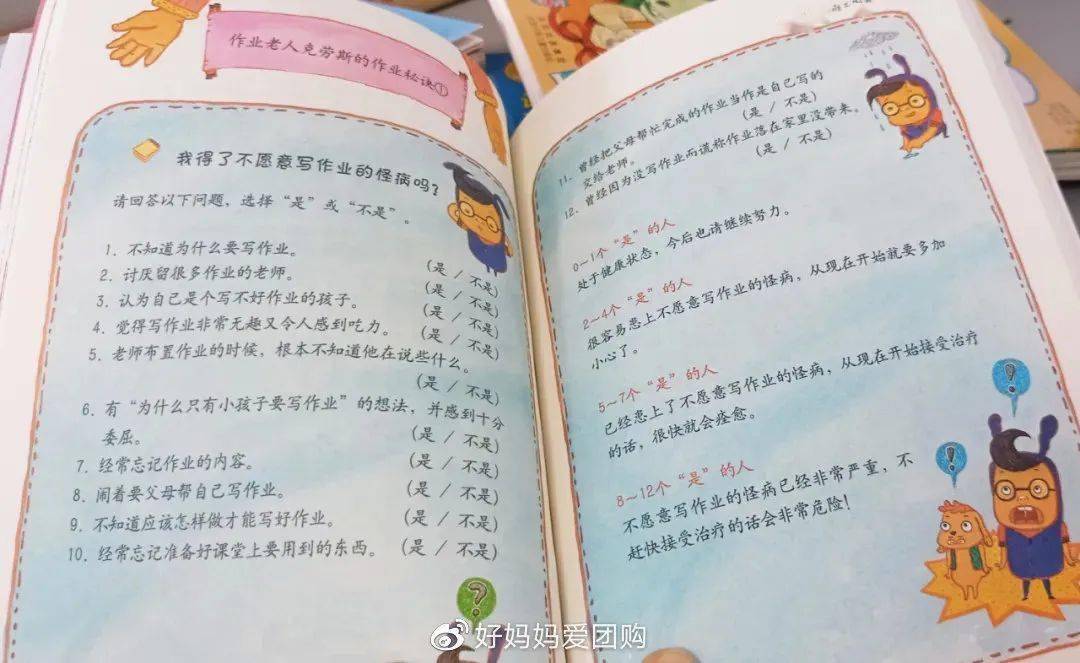 作业老人克劳斯的作业秘诀①
我得了不愿意写作业的怪病吗?
请回答以下问题，选择“是”或“不是”。
1. 不知道为什么要写作业。 (是 / 不是)
2. 讨厌留很多作业的老师。 (是 / 不是)
3. 认为自己是个写不好作业的孩子。 (是 / 不是)
4. 觉得写作业非常无趣又令人感到吃力。 (是 / 不是)
5. 老师布置作业的时候，根本不知道他在说些什么。
(是 / 不是)
6. 有“为什么只有小孩子要写作业”的想法，并感到十分
委屈。 (是 / 不是)
7. 经常忘记作业的内容。 (是 / 不是)
8. 闹着要父母帮自己写作业。 (是 / 不是)
9. 不知道应该怎样做才能写好作业。 (是 / 不是)
10. 经常忘记准备好课堂上要用到的东西。 (是 / 不是)
?
11. 曾经把父母帮忙完成的作业当作是自己写的
交给老师。 (是 / 不是)
12. 曾经因为没写作业而谎称作业落在家里没带来。
(是 / 不是)
0～1个“是”的人
处于健康状态，今后也请继续努力。
2～4个“是”的人
很容易患上不愿意写作业的怪病，从现在开始就要多加
小心了。
5～7个“是”的人
已经患上了不愿意写作业的怪病，从现在开始接受治疗
的话，很快就会痊愈。
8～12个“是”的人
不愿意写作业的怪病已经非常严重，不
赶快接受治疗的话会非常危险!
!
!
好妈妈爱团购